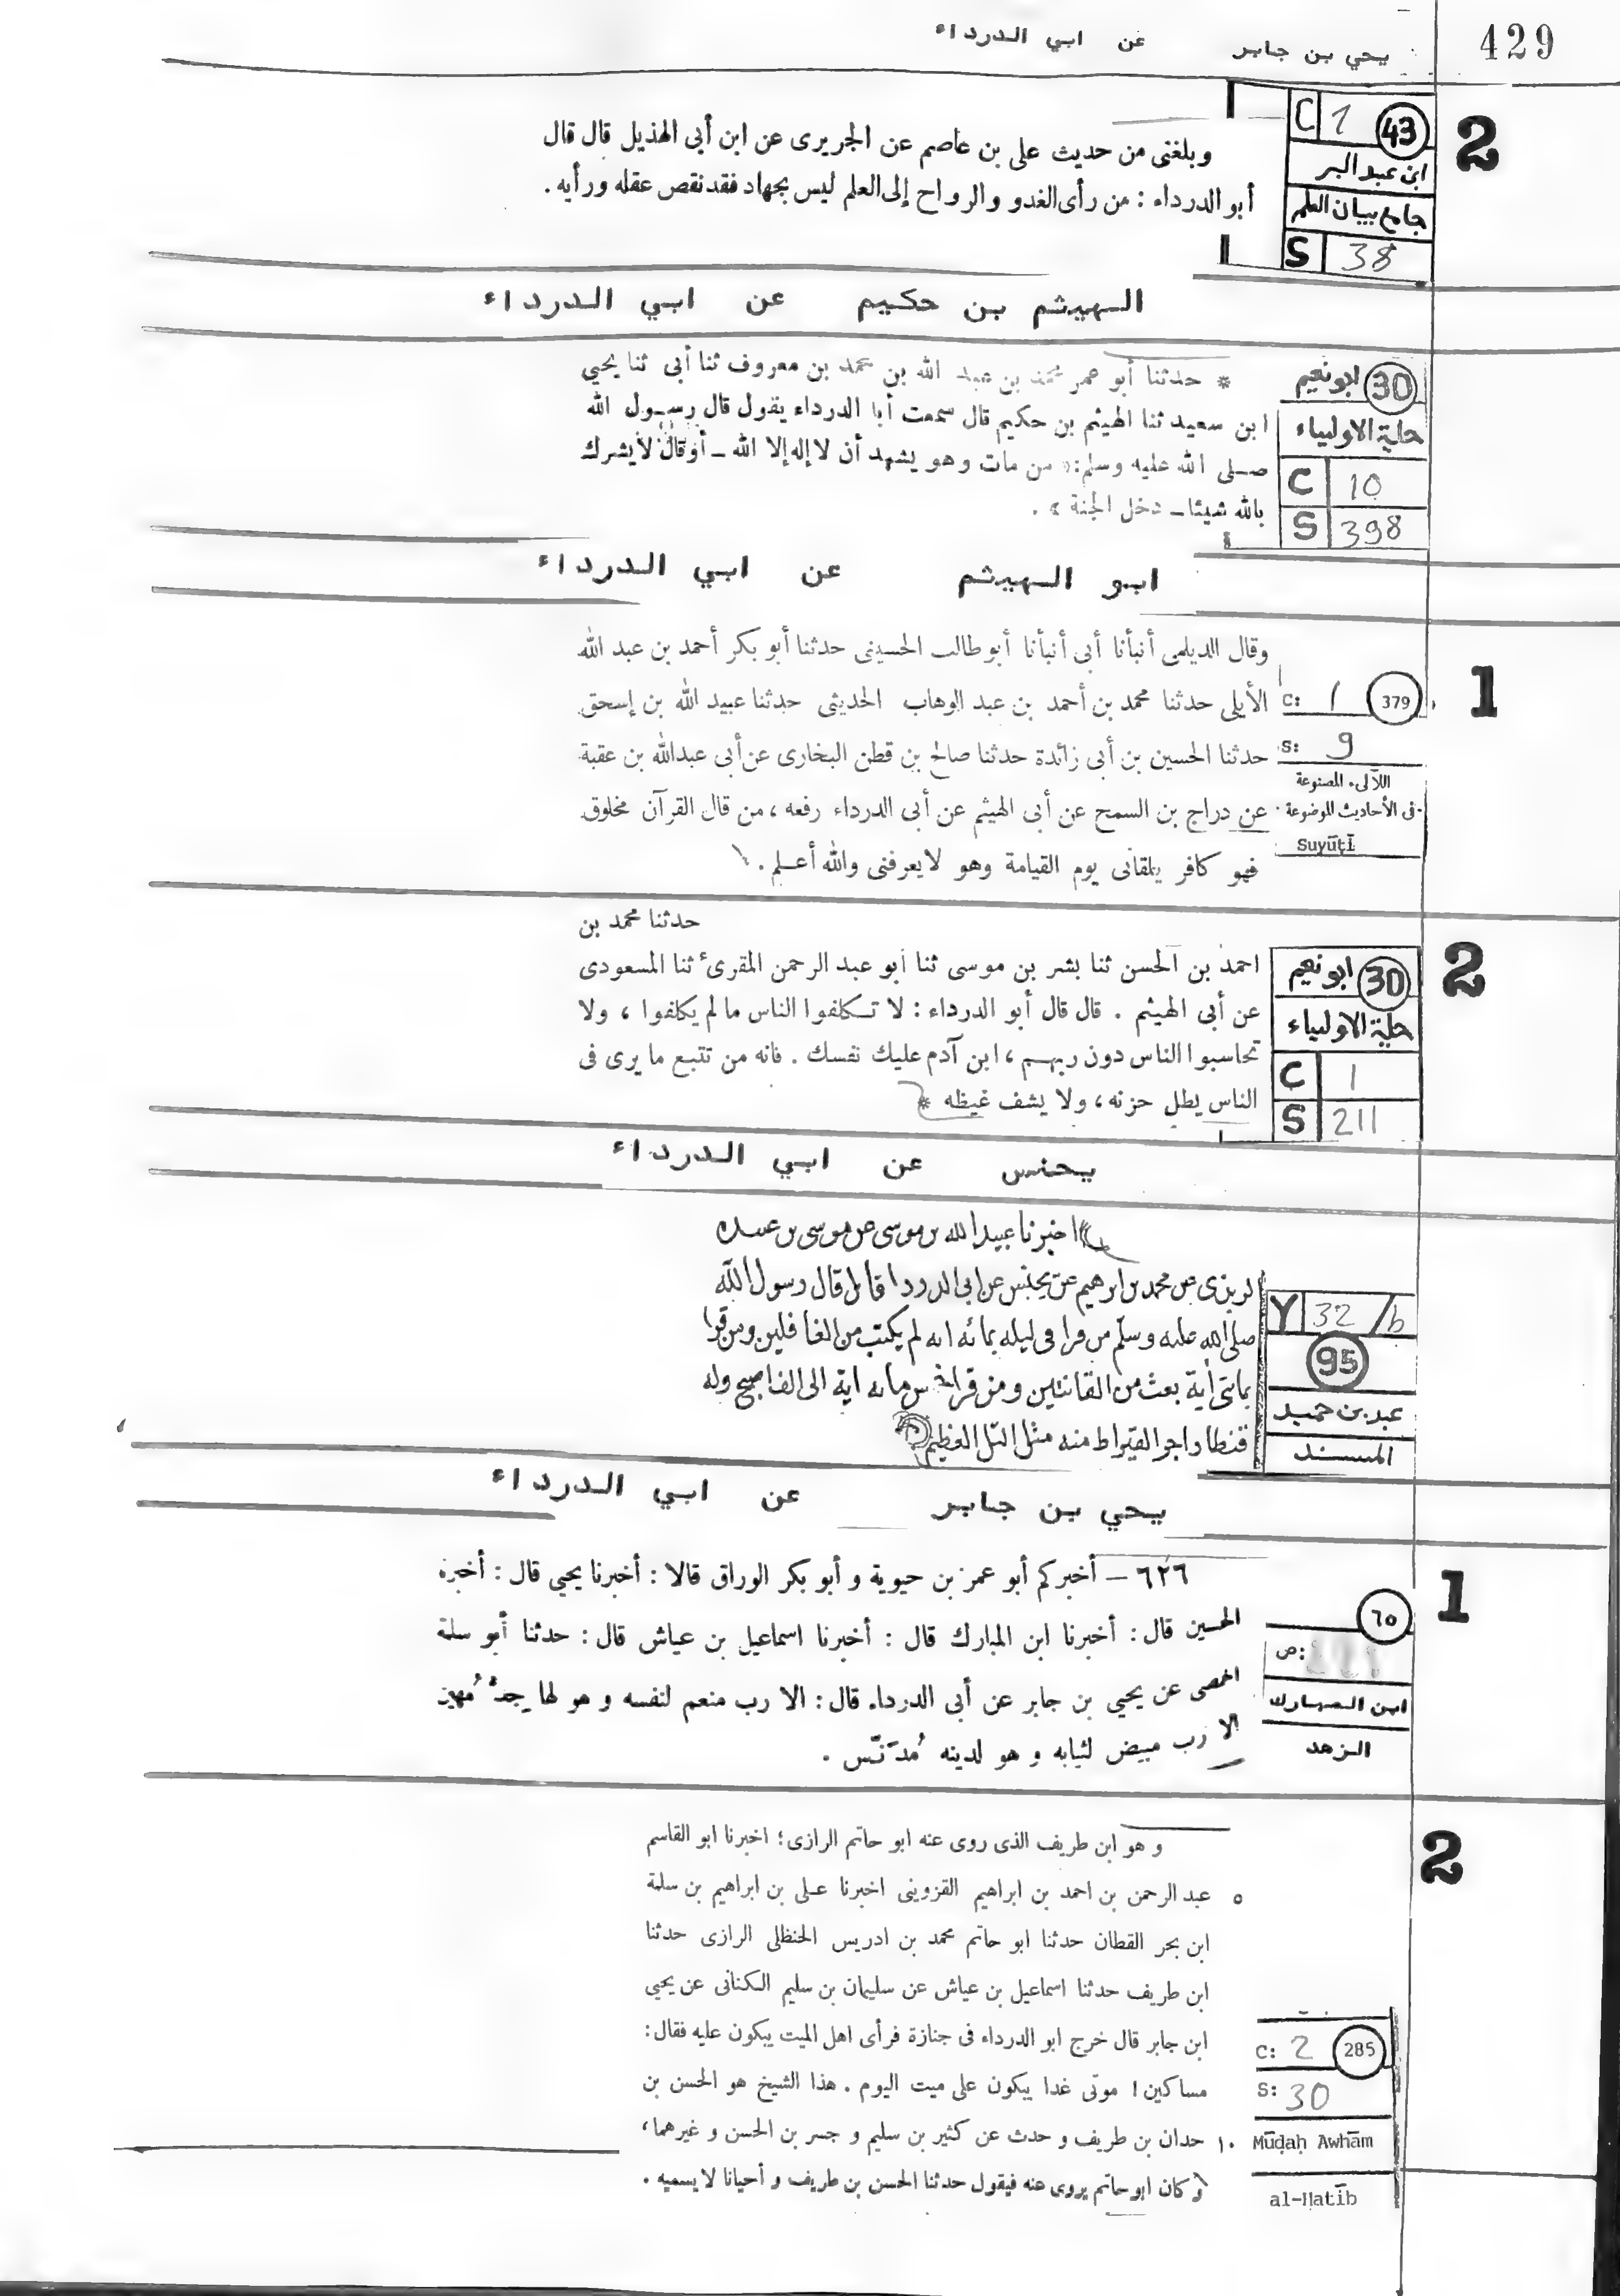 429
يحي بن جابر عن ابي الدرداء
2
C 1 43
ابن عبد البر
جامع بيان العلم
S 38
وبلغنى من حديث على بن عاصم عن الجريرى عن ابن أبى الهذيل قال قال
أبو الدرداء : من رأى الغدو والرواح إلى العلم ليس بجهاد فقد نقص عقله ورأيه .
الهيثم بن حكيم عن ابي الدرداء
30 ابو نعيم
حلية الاولياء
C 10
S 398
* حدثنا أبو عمر محمد بن عبد الله بن محمد بن معروف ثنا أبى ثنا يحيى
ابن سعيد ثنا الهيثم بن حكيم قال سمعت أبا الدرداء يقول قال رسول الله
صلى الله عليه وسلم: « من مات وهو يشهد أن لا إله إلا الله ــ أو قال لا يشرك
بالله شيئا ــ دخل الجنة » .
ابو الهيثم عن ابي الدرداء
1
C: 1 379
S: 9
اللآلىء المصنوعة
فى الأحاديث الموضوعة
Suyūṭī
وقال الديلمى أنبأنا أبى أنبأنا أبو طالب الحسينى حدثنا أبو بكر أحمد بن عبد الله
الأيلى حدثنا محمد بن أحمد بن عبد الوهاب الحديثى حدثنا عبيد الله بن إسحق
حدثنا الحسين بن أبى زائدة حدثنا صالح بن قطن البخارى عن أبى عبدالله بن عقبة
عن دراج بن السمح عن أبى الهيثم عن أبى الدرداء رفعه ، من قال القرآن مخلوق
فهو كافر يلقانى يوم القيامة وهو لا يعرفنى والله أعلم .
2
30 ابو نعيم
حلية الاولياء
C 1
S 211
حدثنا محمد بن
احمد بن الحسن ثنا بشر بن موسى ثنا أبو عبد الرحمن المقرىء ثنا المسعودى
عن أبى الهيثم . قال قال أبو الدرداء : لا تكلفوا الناس ما لم يكلفوا ، ولا
تحاسبوا الناس دون ربهم ، ابن آدم عليك نفسك . فانه من تتبع ما يرى فى
الناس يطل حزنه ، ولا يشف غيظه *
يحنس عن ابي الدرداء
Y 32/b
95
عبد بن حميد
المسند
اخبرنا عبيد الله بن موسى عن موسى بن عبيده
الربذى عن محمد بن ابرهيم عن يحنس عن ابى الدردا قال قال رسول الله
صلى الله عليه وسلم من قرا فى ليله بمائه ايه لم يكتب من الغافلين ومن قرا
بمائتى اية بعث من القانتين ومن قرا خمس مائه اية الى الف اصبح وله
قنطار اجر القيراط منه مثل التل العظيم
يحي بن جابر عن ابي الدرداء
1
٦٥
ص:
ابن المبارك
الزهد
٦٢٦ – أخبركم أبو عمر بن حيوية و أبو بكر الوراق قالا : أخبرنا يحيي قال : أخبرنا
الحسين قال : أخبرنا ابن المبارك قال : أخبرنا اسماعيل بن عياش قال : حدثنا أبو سلمة
الحمصى عن يحيي بن جابر عن أبى الدرداء قال : الا رب منعم لنفسه و هو لها جدّ مُهين
الا رب مبيض لثيابه و هو لدينه مُدَنّس .
2
C: 2 285
S: 30
Mūḍaḥ Awhām
al-Ḫaṭīb
و هو ابن طريف الذى روى عنه ابو حاتم الرازى ؛ اخبرنا ابو القاسم
٥ عبد الرحمن بن احمد بن ابراهيم القزوينى اخبرنا على بن ابراهيم بن سلمة
ابن بحر القطان حدثنا ابو حاتم محمد بن ادريس الحنظلى الرازى حدثنا
ابن طريف حدثنا اسماعيل بن عياش عن سليمان بن سليم الكنانى عن يحيى
ابن جابر قال خرج ابو الدرداء فى جنازة فرأى اهل الميت يبكون عليه فقال :
مساكين ! موتى غدا يبكون على ميت اليوم . هذا الشيخ هو الحسن بن
١٠ حدان بن طريف و حدث عن كثير بن سليم و جسر بن الحسن و غيرهما ،
و كان ابو حاتم يروى عنه فيقول حدثنا الحسن بن طريف و أحيانا لا يسميه .